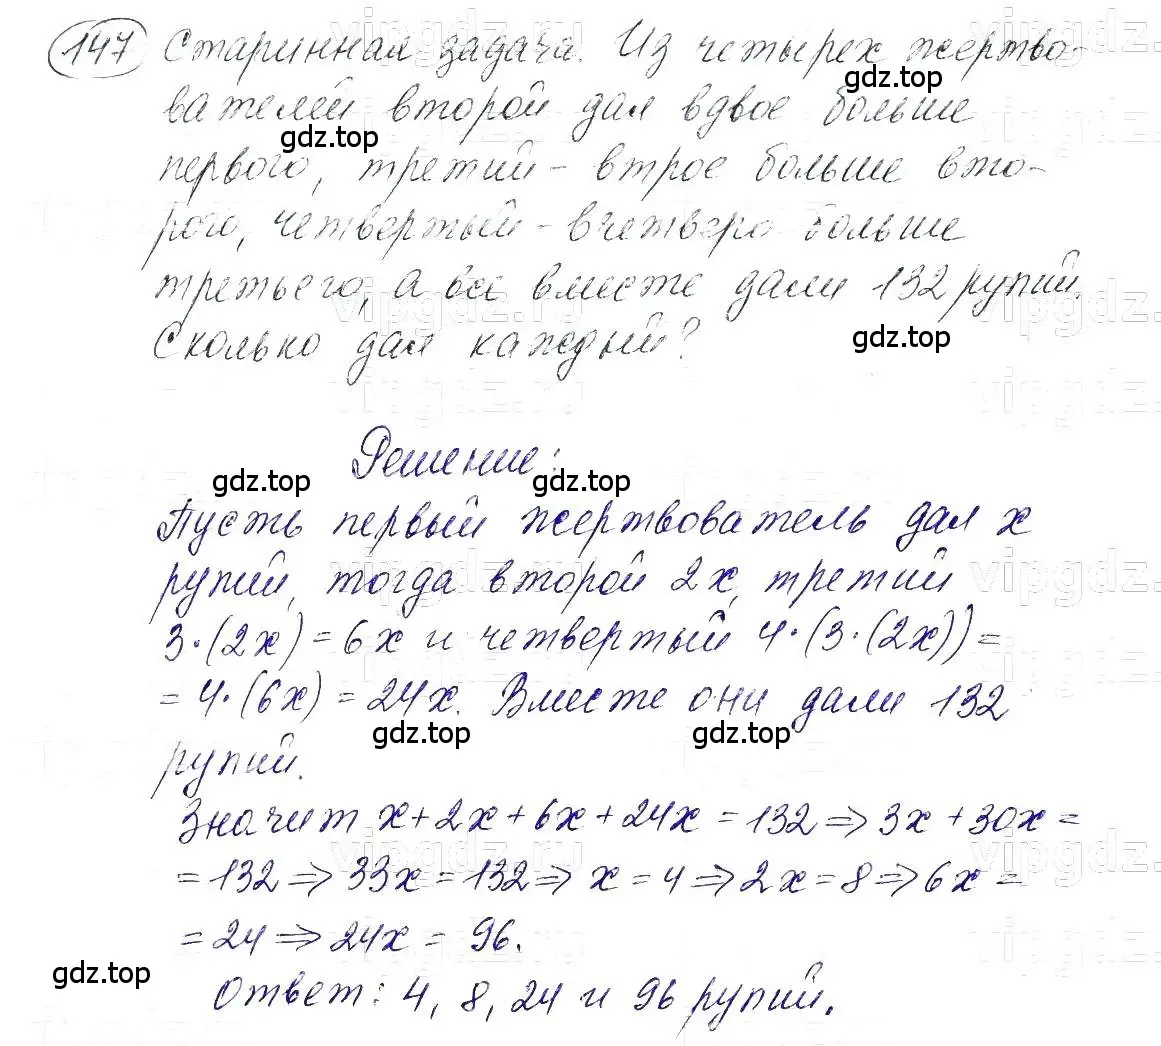 147 Старинная задача. Из четырех жертво-
вателей второй дал вдвое больше
gdz.top
gdz.top
первого, третий - втрое больше вто-
рого, четвертый - вчетверо больше
третьего, а все вместе дали 132 рупий.
Сколько дал каждый?
gdz.top
Решение:
gdz.top gdz.top
Пусть первый жертвователь дал x
рупий, тогда второй 2x, третий
3·(2x) = 6x и четвертый 4·(3·(2x)) =
= 4·(6x) = 24x. Вместе они дали 132
gdz.top gdz.top
рупий.
Значит x+2x+6x+24x = 132 ⇒ 3x+30x =
= 132 ⇒ 33x = 132 ⇒ x = 4 ⇒ 2x = 8 ⇒ 6x =
= 24 ⇒ 24x = 96.
gdz.top
Ответ: 4, 8, 24 и 96 рупий.